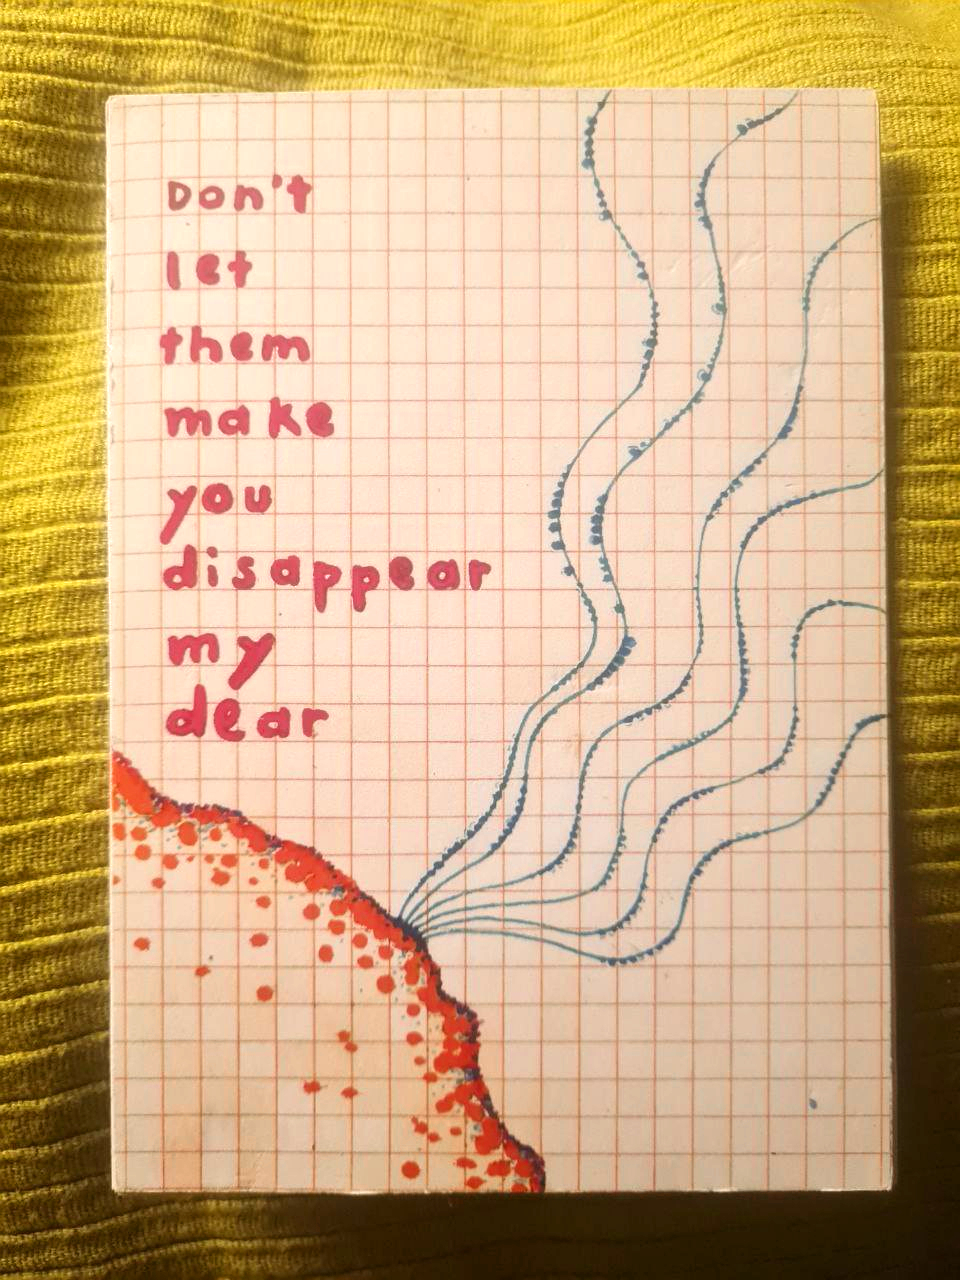 Don't
let
them
make
you
disappear
my
dear